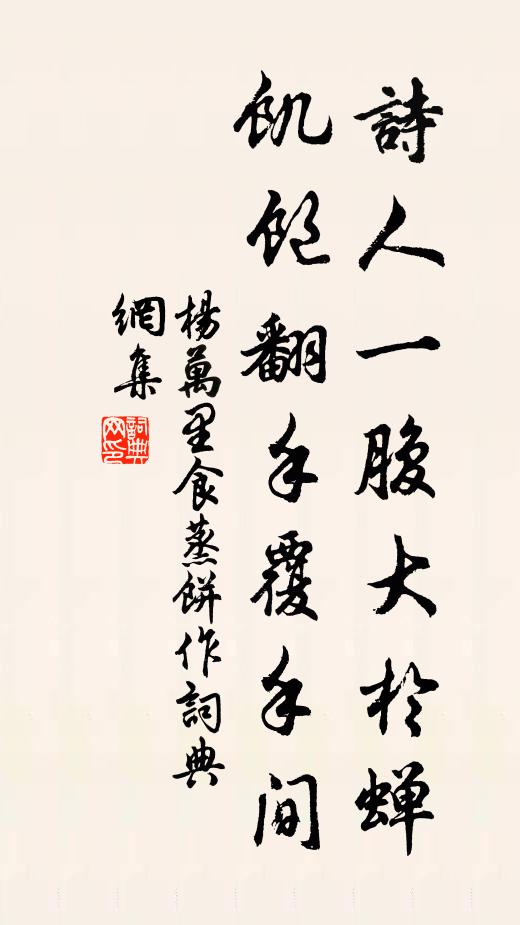 詩人一腹大於蟬
飢飽翻手覆手間
楊萬里食蒸餅作詞典
網集
詞典网印